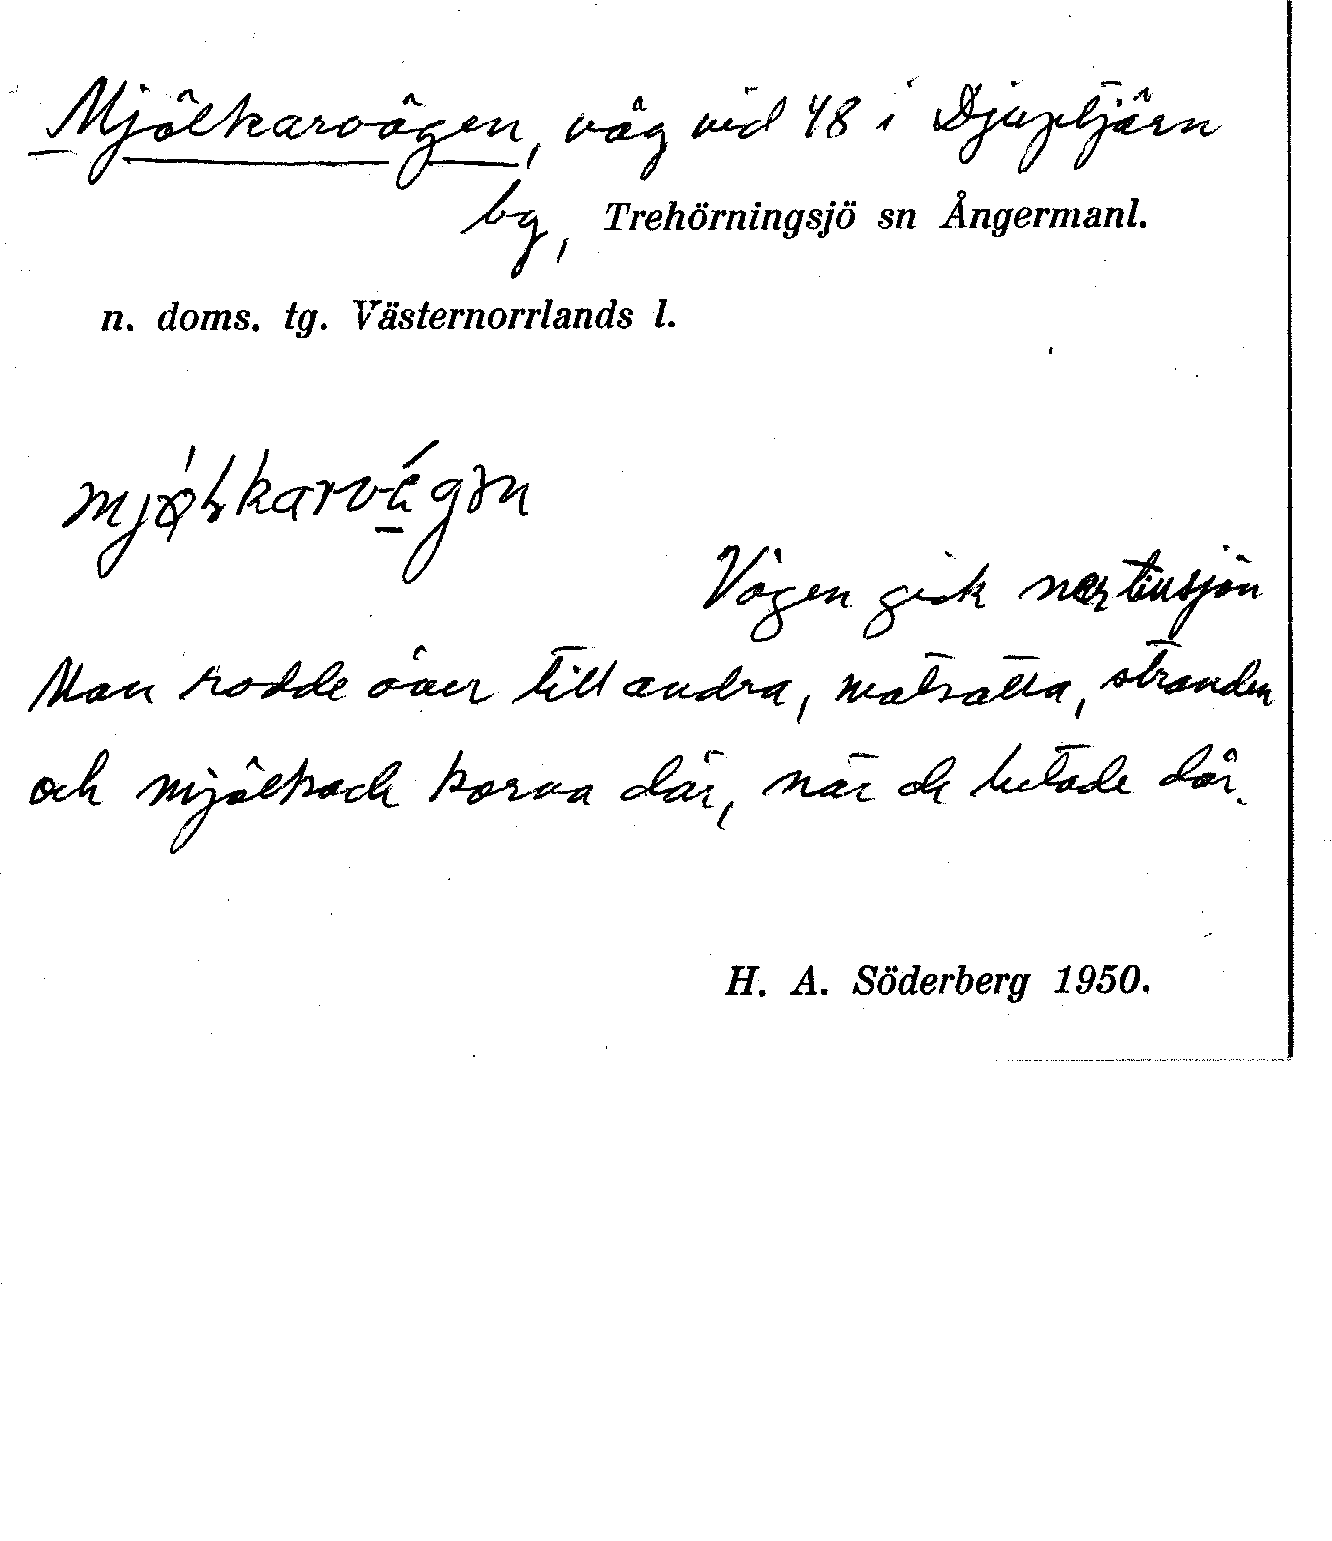 Mjölkarvägen, väg vid 48 i Djuptjärn
by, Trehörningsjö sn Ångermanl.
n. doms. tg. Västernorrlands l.
Vägen gick ner till sjön
Man rodde över till andra, motsatta, stranden
och mjölkade korna där, när de betade där.
H. A. Söderberg 1950.